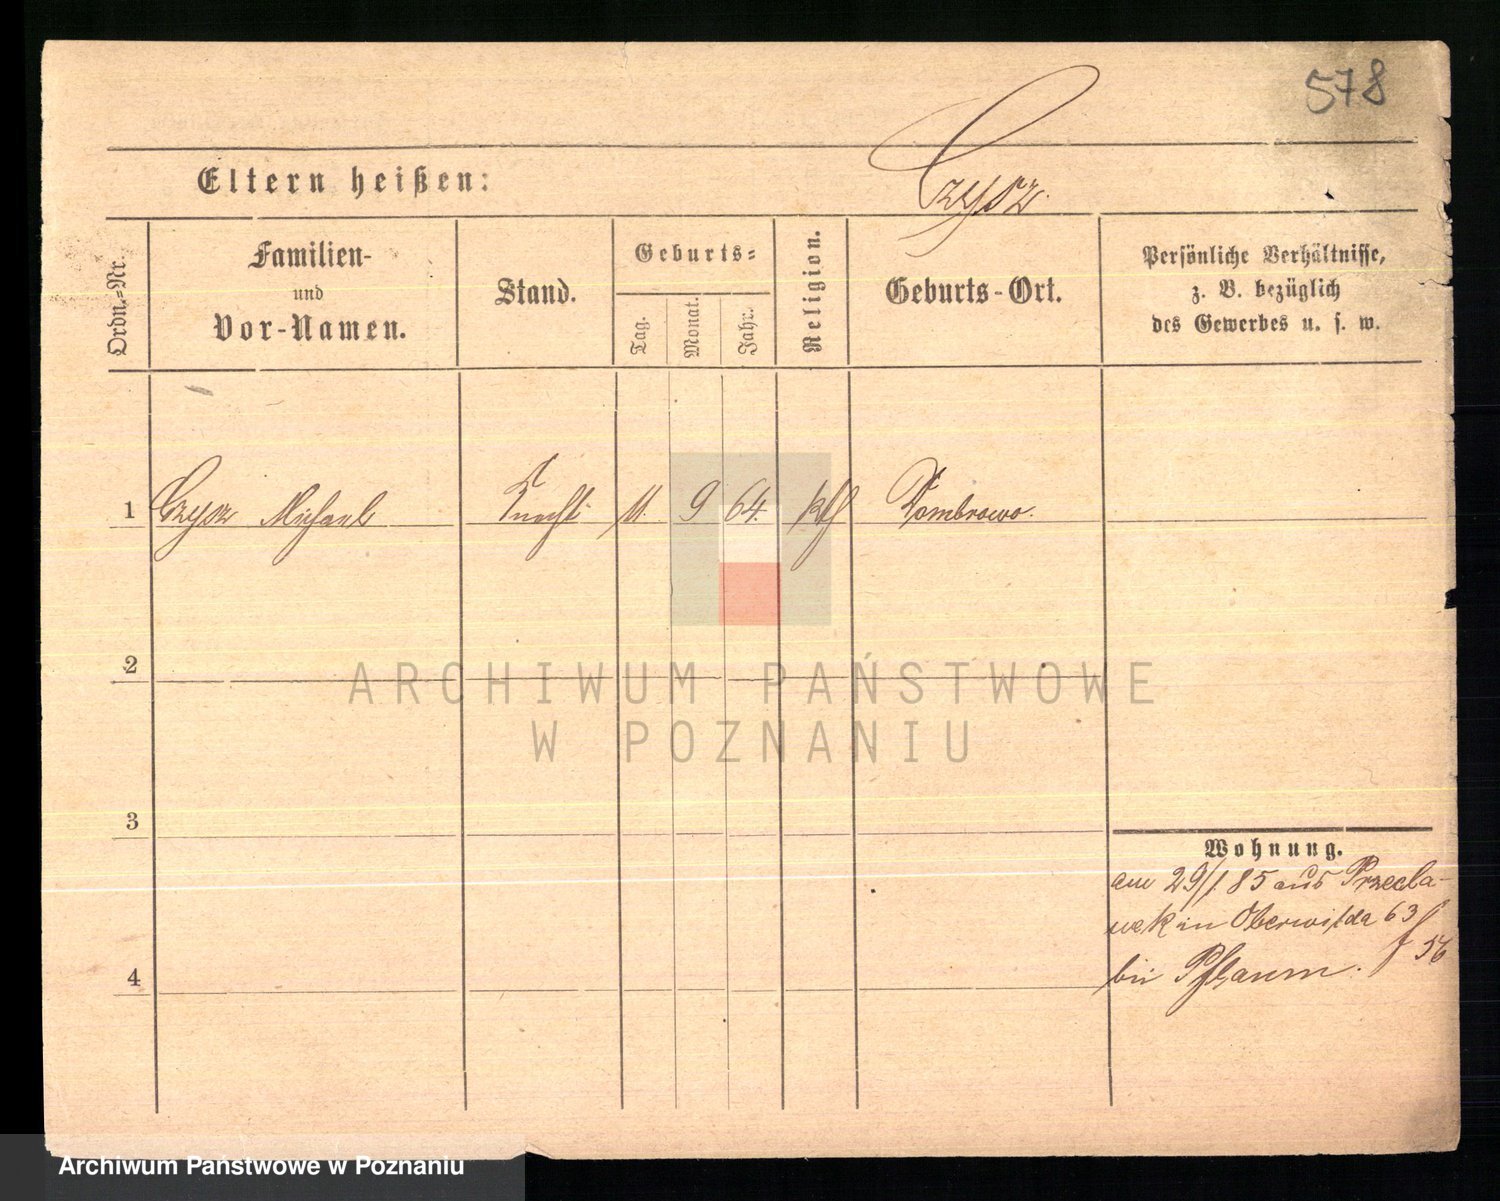 578
Czysz.
Eltern heißen:
Ordn.=Nr.
Familien-
und
Vor-Namen.
Stand.
Geburts=
Tag.
Monat.
Jahr.
Religion.
Geburts-Ort.
Persönliche Verhältnisse,
z. B. bezüglich
des Gewerbes u. s. w.
1 Czysz Michael Knecht 11. 9 64. kth Dombrowo.
2
ARCHIWUM PAŃSTWOWE
W POZNANIU
3
Wohnung.
am 29/1 85 aus Przecla-
wek in Oberwilda 63
bei Pflaum. f 56
4
Archiwum Państwowe w Poznaniu